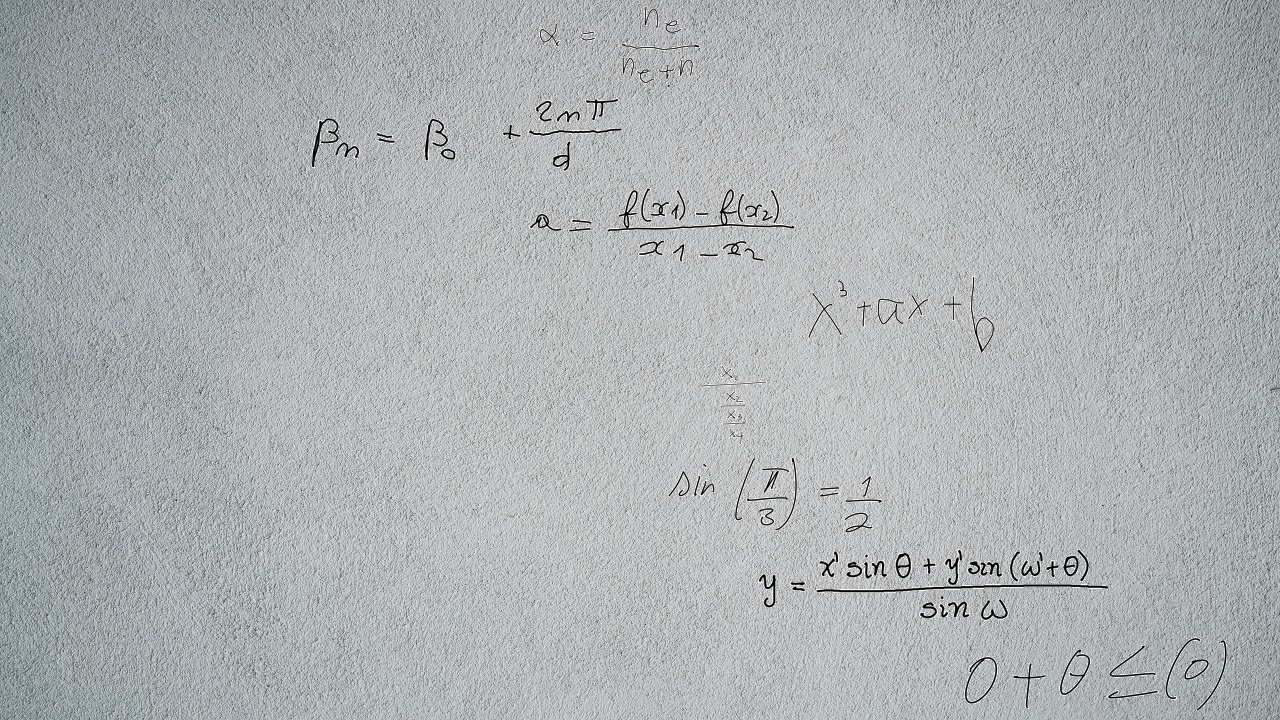 α = n_e / (n_e + n)
β_n = β_0 + 2nπ / d
a = (f(x_1) - f(x_2)) / (x_1 - x_2)
x^3 + ax + b
x_1 / (x_2 / (x_3 / x_4))
sin (π/3) = 1/2
y = (x' sin θ + y' sin (ω' + θ)) / sin ω
0 + θ ≤ (0)